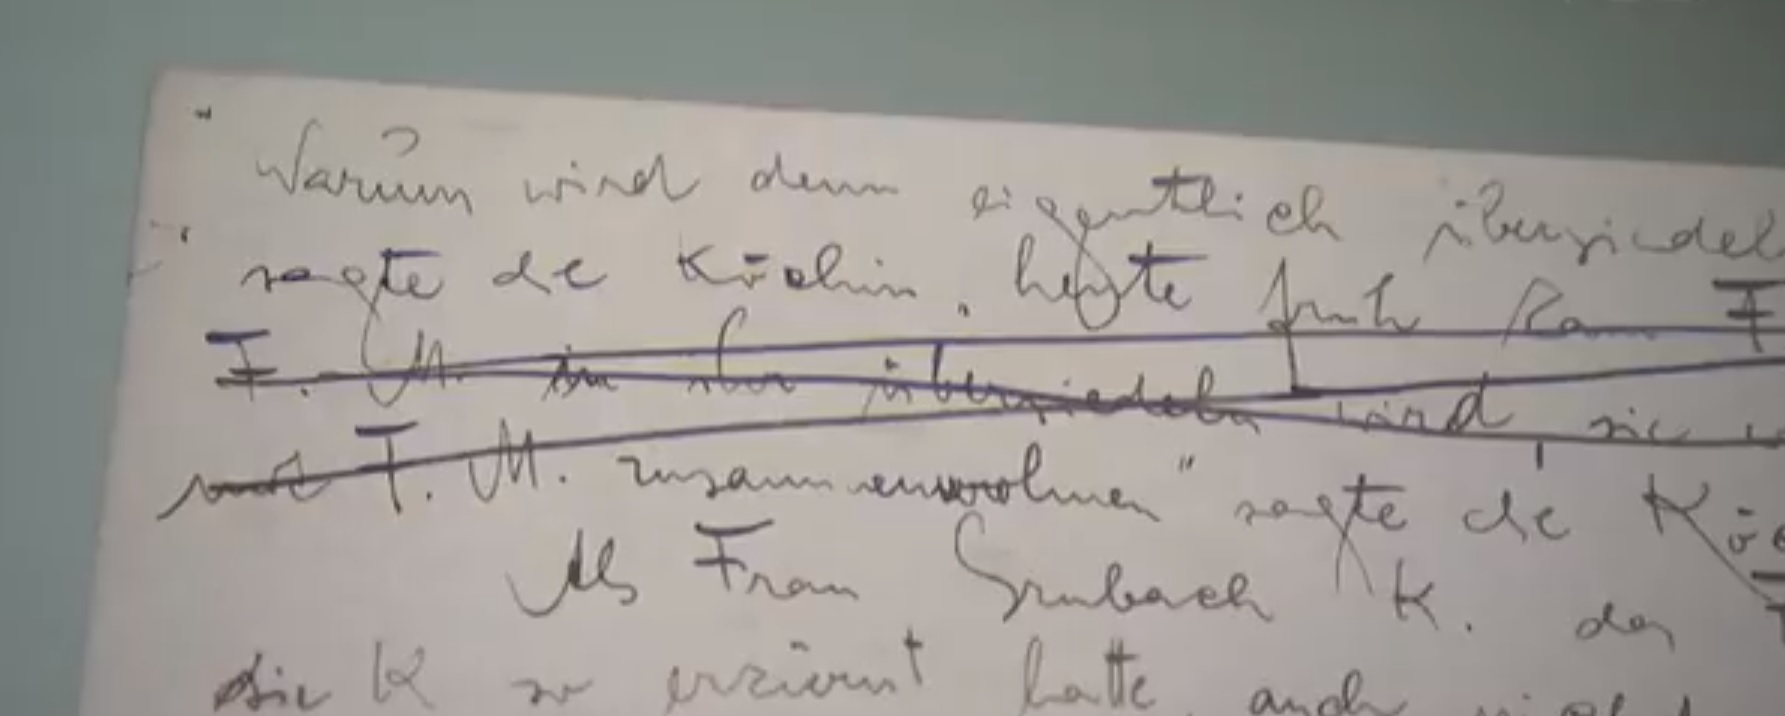 Warum wird denn eigentlich übersiedel
sagte die Köchin, heute früh kam F
F. M. übersiedeln wird sie
T. M. zusammenwohnen" sagte die Kö
Als Frau Grubach K. den
die K so erzürnt hatte, auch nicht